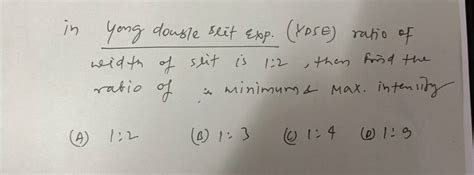 in Yong double slit Exp. (YDSE) ratio of
width of slit is 1:2, then find the
ratio of minimum & Max. intensity
(A) 1:2 (B) 1:3 (C) 1:4 (D) 1:9